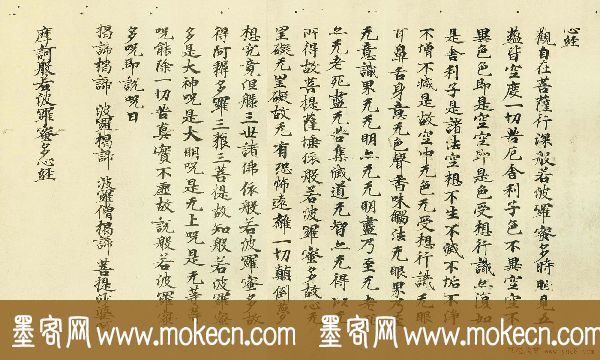 心経
觀自在菩薩行深般若波羅蜜多時照見五
蘊皆空度一切苦厄舍利子色不異空空不
異色色即是空空即是色受想行識亦復如
是舍利子是諸法空相不生不滅不垢不淨
不增不減是故空中无色无受想行識无眼
耳鼻舌身意无色聲香味觸法无眼界乃至
无意識界无无明亦无无明盡乃至无老
亦无老死盡无苦集滅道无智亦无得以无
所得故菩提薩埵依般若波羅蜜多故心无
罣礙无罣礙故无有恐怖遠離一切顛倒夢
想究竟涅槃三世諸佛依般若波羅蜜多故
得阿耨多羅三藐三菩提故知般若波羅蜜
多是大神呪是大明呪是无上呪是无等等
呪能除一切苦真實不虛故說般若波羅蜜
多呪即說呪曰
揭諦揭諦 波羅揭諦 波羅僧揭諦 菩提莎婆
摩訶般若波羅蜜多心経
墨客网 www.mokecn.com 墨客网 www.mokecn.com